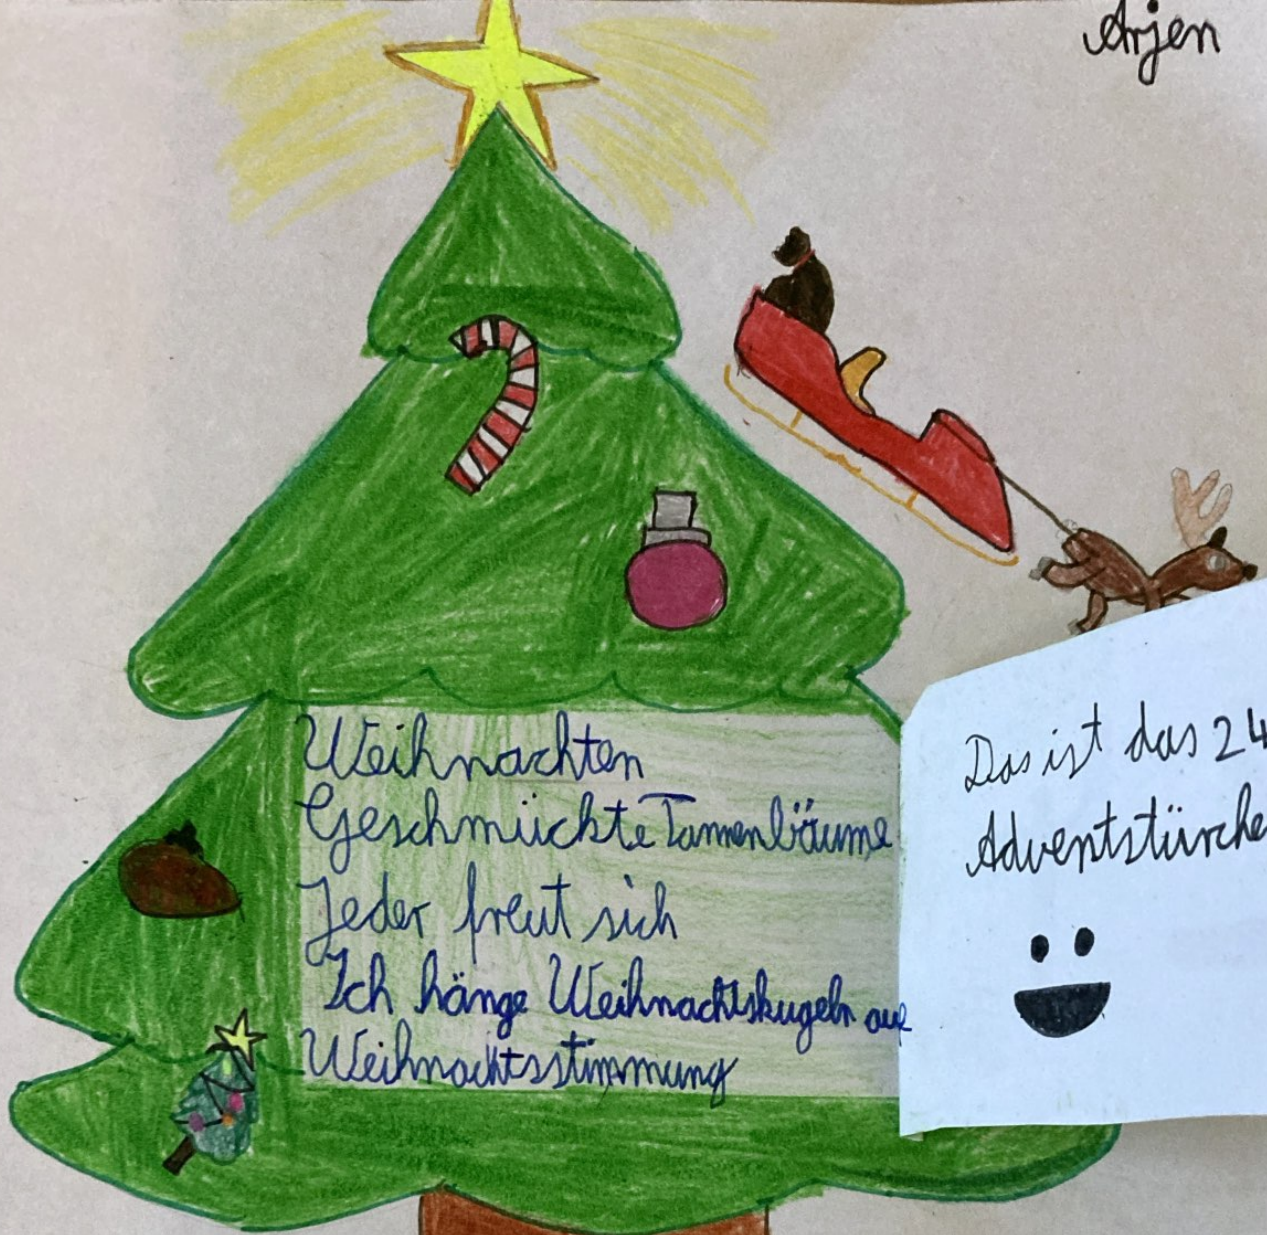 Arjen
Weihnachten
Geschmückte Tannenbäume
Jeder freut sich
Ich hänge Weihnachtskugeln auf
Weihnachtsstimmung
Das ist das 24
Adventstürche